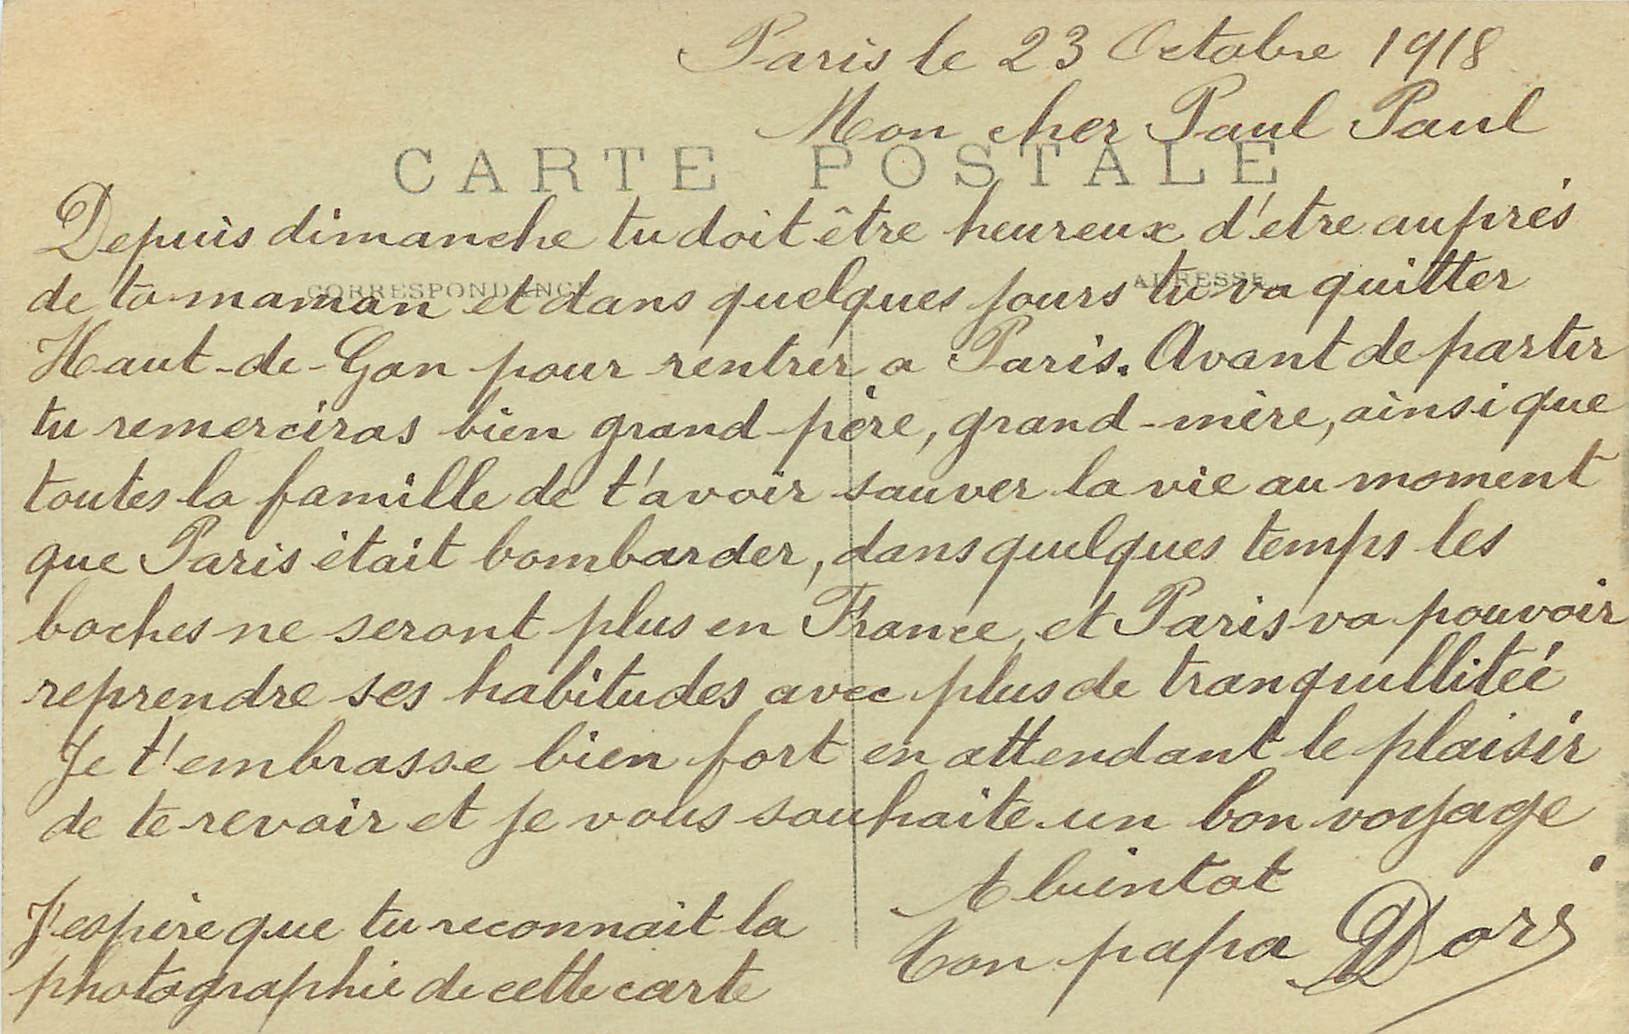 Paris le 23 Octobre 1918
Mon cher Paul Paul
CARTE POSTALE
Depuis dimanche tu doit être heureux d'être auprés
CORRESPONDANCE
ADRESSE
de ta maman et dans quelques jours tu va quitter
Haut-de-Gan pour rentrer a Paris. Avant de partir
tu remerciras bien grand-père, grand-mère, ainsi que
toutes la famille de t'avoir sauver la vie au moment
que Paris était bombarder, dans quelques temps les
boches ne seront plus en France, et Paris va pouvoir
reprendre ses habitudes avec plus de tranquillitée
Je t'embrasse bien fort en attendant le plaisir
de te revoir et je vous souhaite un bon voyage
A buintot
Ton papa
J'espère que tu reconnait la
photographie de cette carte